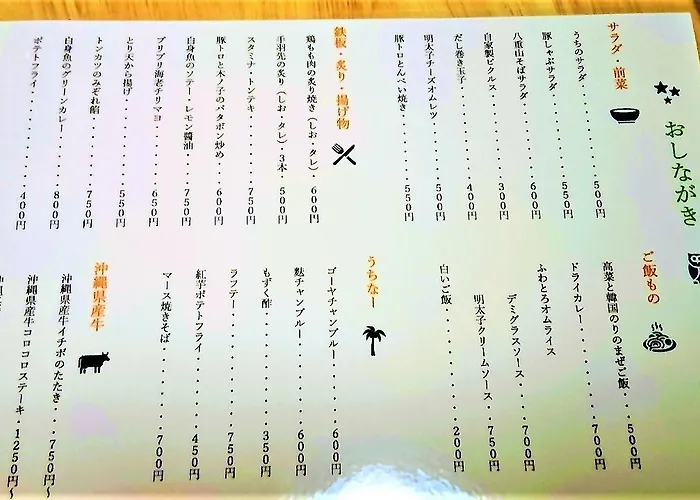 おしながき
サラダ・前菜
うちのサラダ・・・・・・・・500円
豚しゃぶサラダ・・・・・・・550円
八重山そばサラダ・・・・・・600円
自家製ピクルス・・・・・・・300円
だし巻き玉子・・・・・・・・400円
明太子チーズオムレツ・・・・550円
豚トロとんぺい焼き・・・・・550円
鉄板・炙り・揚げ物
鶏もも肉の炙り焼き(しお・タレ)600円
手羽先の炙り(しお・タレ)3本・500円
スタミナ・トンテキ・・・・・750円
豚トロと木ノ子のバタポン炒め・・600円
白身魚のソテー・レモン醬油・・・750円
プリプリ海老チリマヨ・・・・650円
とり天から揚げ・・・・・・・550円
トンカツのみぞれ餡・・・・・750円
白身魚のグリーンカレー・・・800円
ポテトフライ・・・・・・・・400円
ご飯もの
高菜と韓国のりのまぜご飯・・・500円
ドライカレー・・・・・・・・700円
ふわとろオムライス
デミグラスソース・・・・・・700円
明太子クリームソース・・・・750円
白いご飯・・・・・・・・・・200円
うちなー
ゴーヤチャンプルー・・・・・600円
麩チャンプルー・・・・・・・600円
もずく酢・・・・・・・・・・350円
ラフテー・・・・・・・・・・750円
紅芋ポテトフライ・・・・・・450円
マース焼きそば・・・・・・・700円
沖縄県産牛
沖縄県産牛イチボのたたき・・・750円〜
沖縄県産牛コロコロステーキ・1250円〜